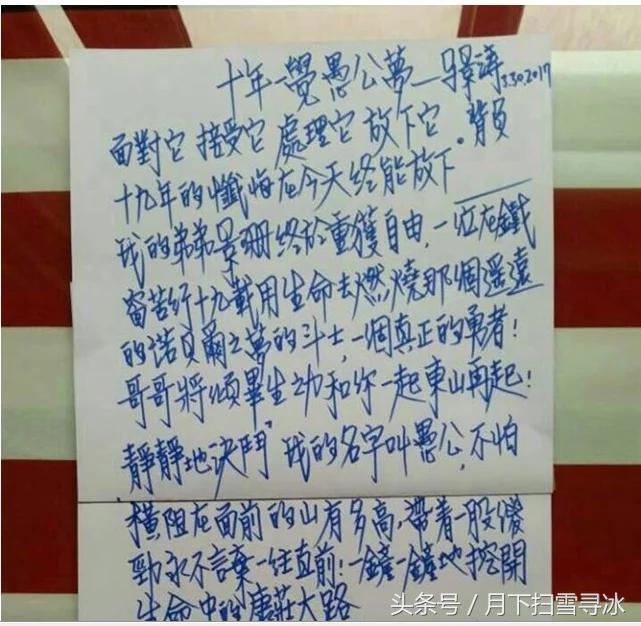 十年一覺愚公夢—景濤 3.30.2017
面對它 接受它 處理它 放下它．背負
十九年的懺悔在今天終能放下
我的弟弟景珊終於重獲自由，一位在鐵
窗苦行十九載用生命去燃燒那個遥遠
的諾貝爾之夢的斗士，一個真正的勇者！
哥哥將傾畢生功和你一起東山再起！
靜靜地決鬥 我的名字叫愚公，不怕
橫阻在面前的山有多高，帶着一股傻
勁永不言棄一往直前！一鏟一鏟地挖開
生命中的康莊大路
头条号 / 月下扫雪寻冰